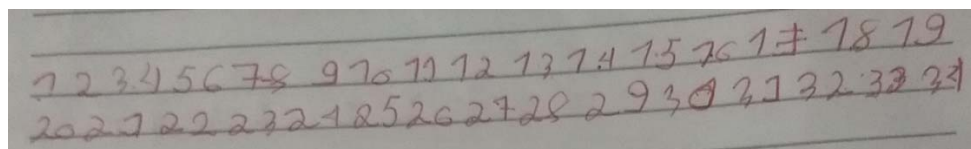 1 2 3 4 5 6 7 8 9 10 11 12 13 14 15 16 17 18 19
20 21 22 23 24 25 26 27 28 29 30 31 32 33 34